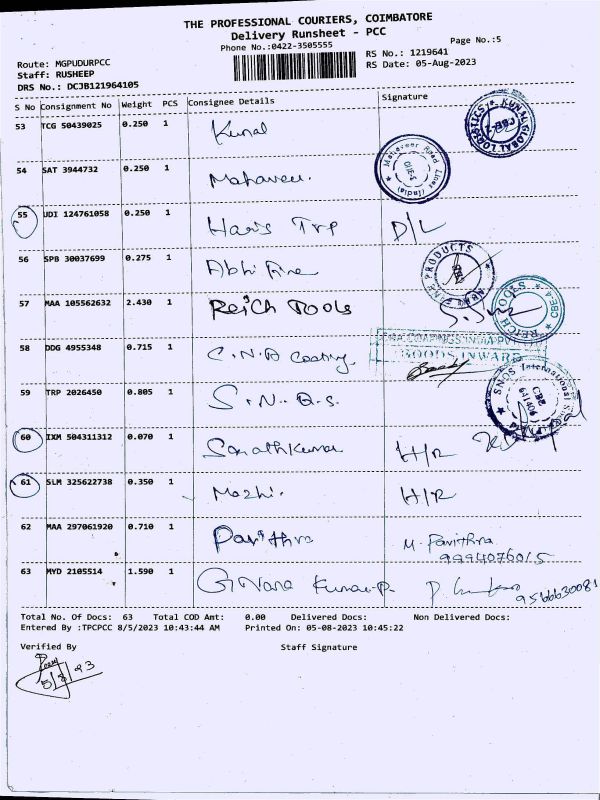 THE PROFESSIONAL COURIERS, COIMBATORE
Delivery Runsheet - PCC
Phone No.:0422-3505555
Page No.:5
Route: MGPUDURPCC
RS No.: 1219641
Staff: RUSHEEP
RS Date: 05-Aug-2023
DRS No.: DCJB121964105
S No Consignment No Weight PCS Consignee Details Signature
53 TCG 50439025 0.250 1 Kunal
KUNAL GLOBAL LOGISTICS
54 SAT 3944732 0.250 1 Mahaveer
Mahaveer Road Liner (India)
55 UDI 124761058 0.250 1 Haris Trp D/L
56 SPB 30037699 0.275 1 Abhi Fine
FINE PRODUCTS
57 MAA 105562632 2.430 1 Reich Tools
REICH TOOLS CBE-4
58 DDG 4955348 0.715 1 C.N.A Coating
COATINGS INDIA PVT
GOODS INWARD
59 TRP 2026450 0.805 1 S.N.A.S.
SNOS International
CBE
641406
60 IXM 504311312 0.070 1 SarathKumar H/R
61 SLM 325622738 0.350 1 Mozhi. H/R
62 MAA 297061920 0.710 1 Pavithra M. Pavithra
9994076015
63 MYD 2105514 1.590 1 Kumar.P.
9566630081
Total No. Of Docs: 63 Total COD Amt: 0.00 Delivered Docs: Non Delivered Docs:
Entered By :TPCPCC 8/5/2023 10:43:44 AM Printed On: 05-08-2023 10:45:22
Verified By Staff Signature
5/8/23